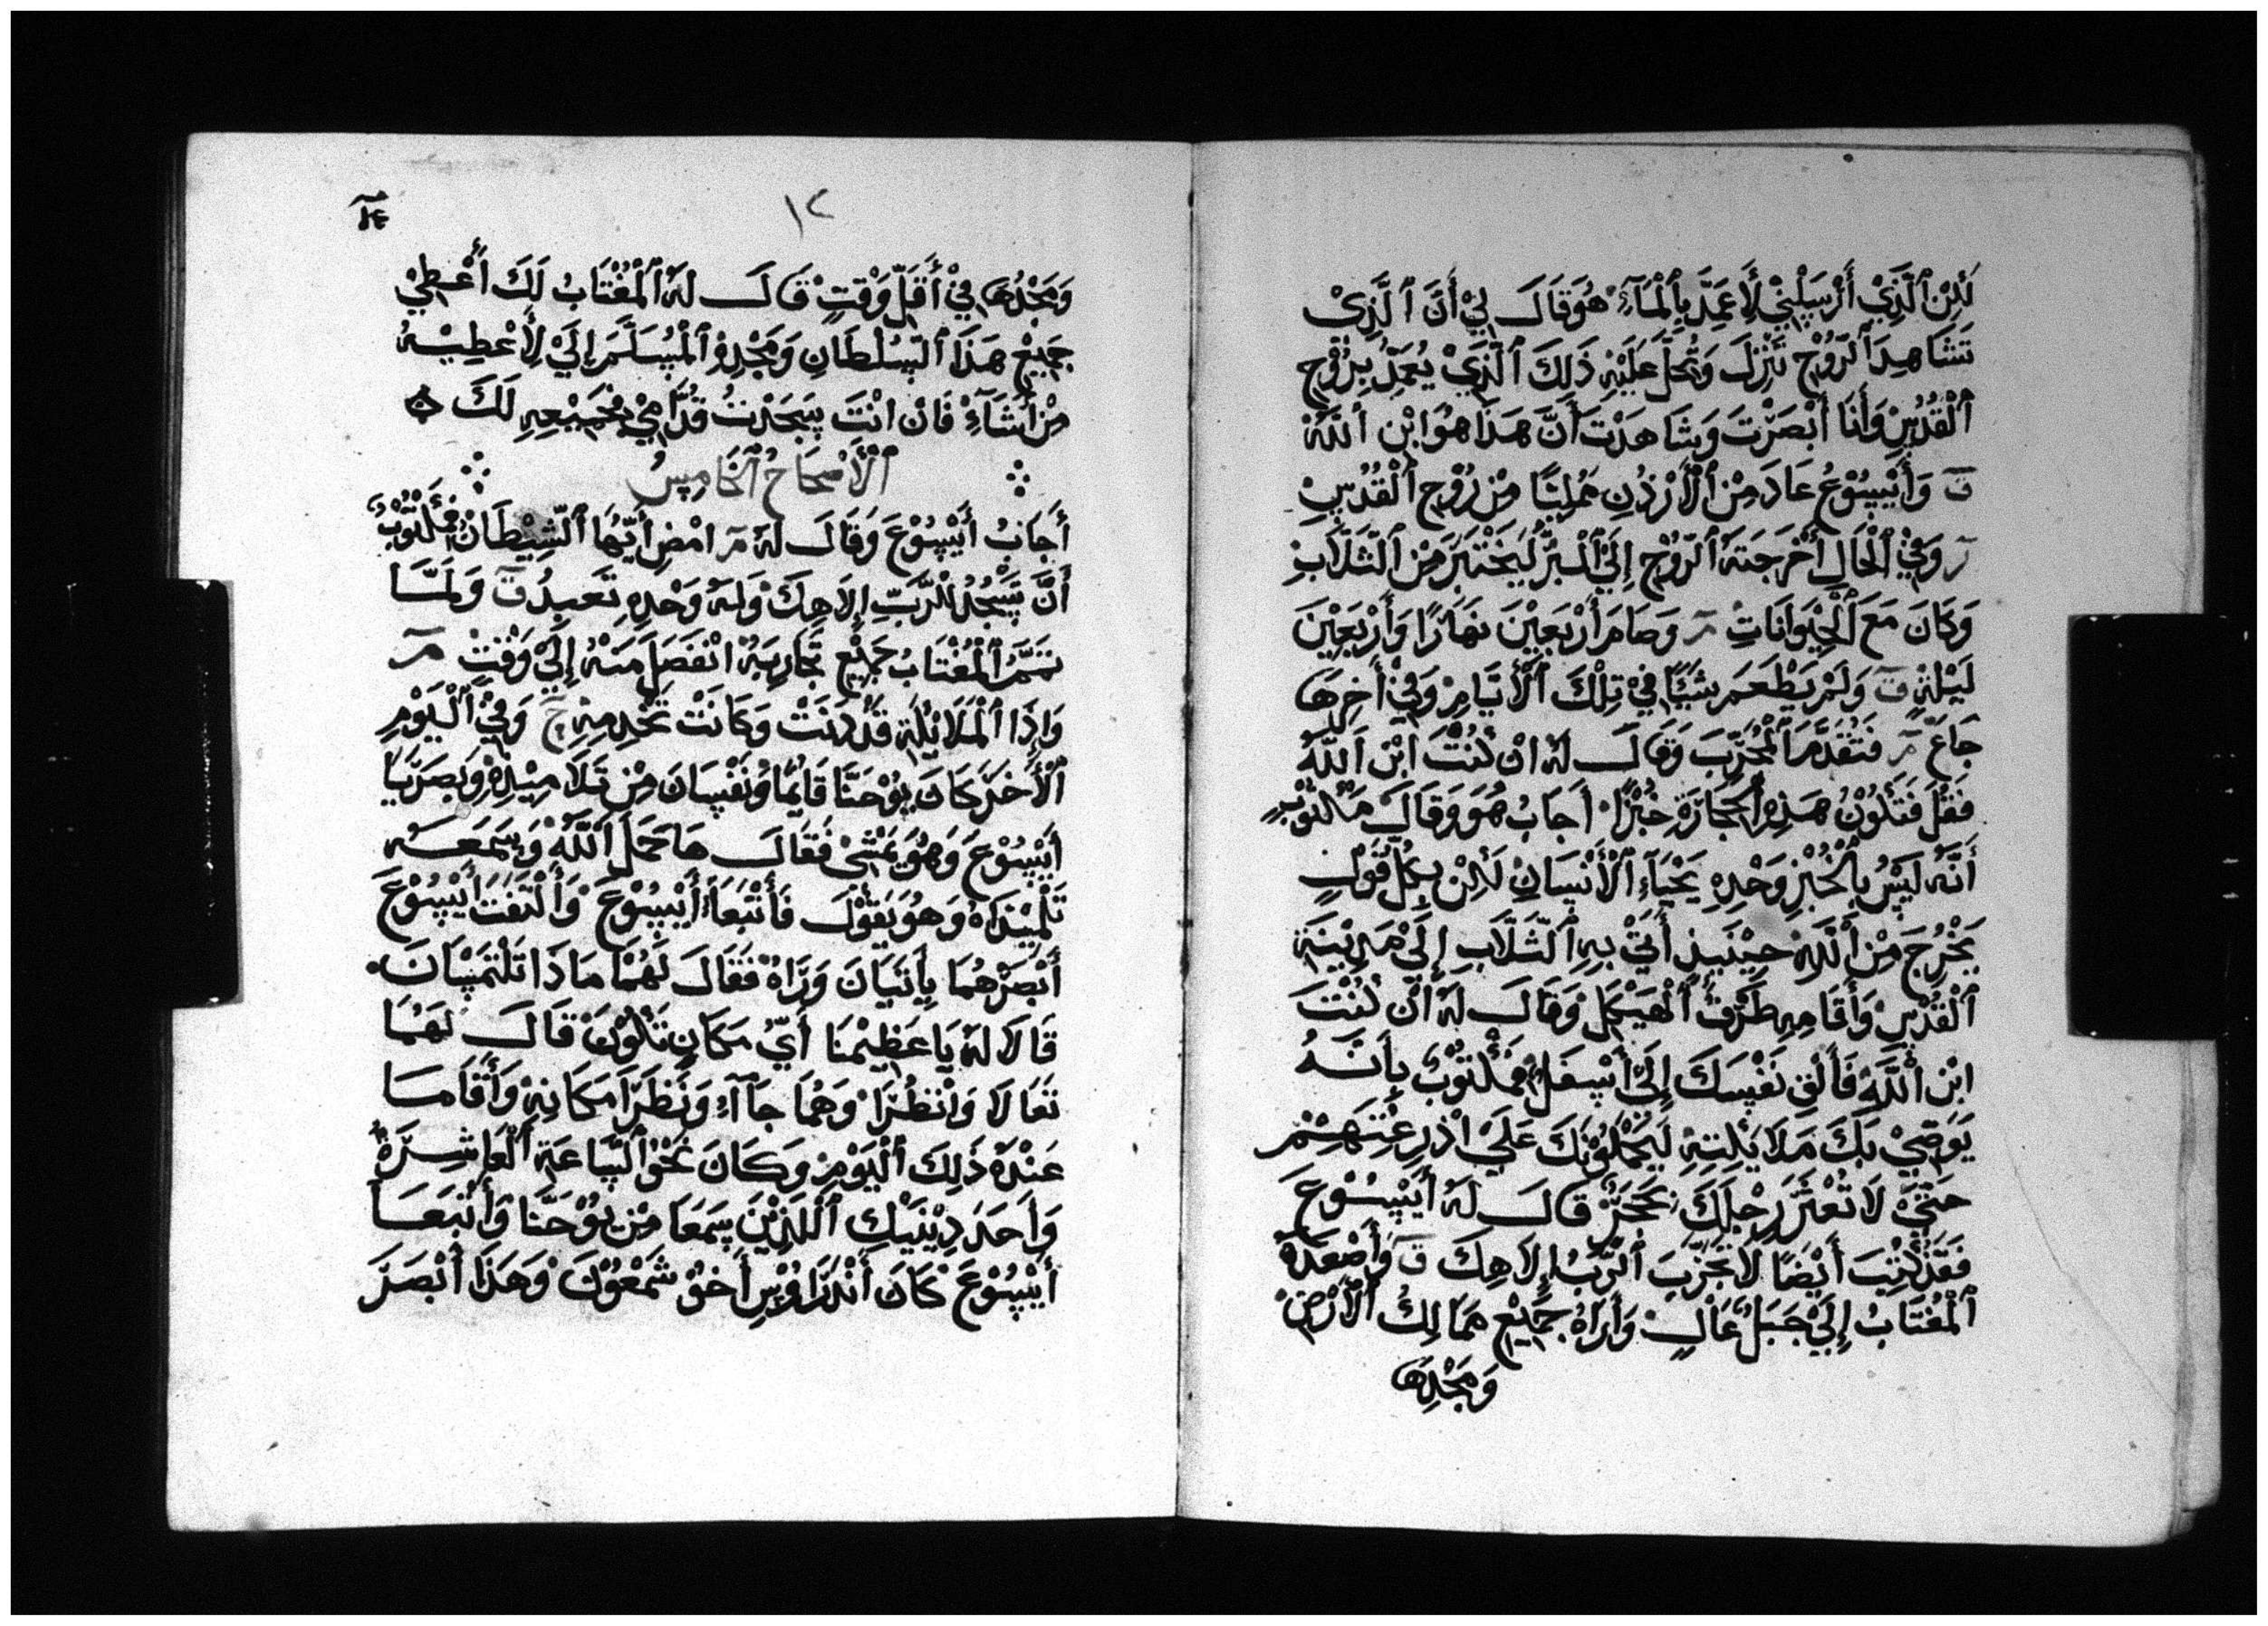 لَكِنْ ٱلَّذِيْ أَرْسَلْنِيْ لِأَعَمِّدَ بِٱلْمَآءِ هُوَ قَالَ لِيْ أَنَّ ٱلَّذِيْ
تَشَاهِدَ ٱلرُّوْحِ تَنْزِلَ وَتُحَلَّ عَلَيْهِ ذَلِكَ ٱلَّذِيْ يُعَمِّدُ بِرُوْحِ
ٱلْقُدُسِ وَأَنَا أَبْصَرْتَ وَشَاهَدْتَ أَنَّ هَذَا هُوَ ابْن ٱللَّهُ
ق وَأَيْسُوْعُ عَادَ مِنْ ٱلْأَرْدُنِ مُمْلِيًا مِنْ رُوْحِ ٱلْقُدُسِ
ر وَفِيْ ٱلْحَالِ أَخْرَجَتَهُ ٱلرُّوْحِ إِلَيْ ٱلْبَرِّ لَيَخْتَبَرَ مِنْ ٱلثَّلَّابِ
وَكَانَ مَعَ ٱلْحَيْوَانَاتِ مر وَصَامَ أَرْبَعِيْنَ نَهَارًا وَأَرْبَعِيْنَ
لَيْلَةٍ ق وَلَمْ يَطْعَمَ شَيْئًا فِيْ تِلْكَ ٱلْأَيَّامِ وَفِيْ أَخِرِهَا
جَاعَ مر فَتَقَدَّمَ ٱلْمُجَرِّبَ وَقَالَ لَهُ انْ كُنْتَ ابْن ٱللَّهُ
فَقُلْ فَتَكُوْنُ هَذِهِ ٱلْحِجَارَةِ خُبْزًا أَجَابُ هُوَ وَقَالَ مَكْتُوْبٍ
أَنَّهُ لَيْسَ بِٱلْخُبْزِ وَحْدِهِ يَحْيَآءِ ٱلْأَنْسَانِ لَكِنْ بِكُلِّ قَوْلٍ
يَخْرُجَ مِنْ ٱللَّهُ حِيْنَيِذٍ أَتَيْ بِهِ ٱلثَّلَّابِ إِلَيْ مَدِيْنَةِ
ٱلْقُدْسِ وَأَقَامِهِ طَرْفُ ٱلْهَيْكَلِ وَقَالَ لَهُ انْ كُنْتَ
ابْن ٱللَّهُ فَأَلْقِ نَفْسَكَ إِلَيْ أَسْفَلْ فَمَكْتُوْبُ بِأَنَّهُ
يَوَصِّيْ بَكَ مَلَايَكِتِهِ لَيَحْمَلُوْنَكَ عَلَيْ اذْرِعْتِهِمْ
حَتَّيْ لَا تُعْثَرَ رِجْلِكَ بِحَجَرٍ قَالَ لَهُ أَيْسُوْعَ
فَقَدْ كُتِبَ أَيْضًا لَا تَجَرِّبَ ٱلرَّبُ إِلَاهِكَ ق وَأَصْعَدَهُ
ٱلْمُغْتَابُ إِلَيْ جَبَلٍ عَالٍ وَأَرَاهُ جَمِيْعِ مَمَالِكُ ٱلْأَرْضِ
وَمَجْدِهَا
١٢
وَمَجْدُهَا فِيْ أَقَلِّ وَقْتٍ قَالَ لَهُ ٱلْمُغْتَابُ لَكَ أَعْطِيْ
جَمِيْعِ هَذَا ٱلسُلْطَانِ وَمَجْدِهِ ٱلْمُسَلَّمَ إِلَيَّ لِأُعْطِيْهُ
مِنْ أَشَآءْ فَانْ انْتَ سَجَدْتُ قُدَّامِيْ فَجَمِيْعِهِ لَكَ
ٱلْأَصْحَاحُ ٱلْخَامِسُ
أَجَابُ أَيْسُوْعَ وَقَالَ لَهُ مر امْضِ أَيُّهَا ٱلشِّيْطَانْ فَمَكْتُوْبُ
أَنَّ تَسْجُدُ لْرَّبِّ إِلَاهِكَ وَلَهُ وَحْدِهِ تَعَبِدُ ق وَلَمَّا
تَمَّمَ ٱلْمُغْتَابُ جَمِيْعِ تَجَارِبَهُ انْفَصَلَ مَنْهُ إِلَيْ وَقْتٍ مر
وَاذَا ٱلْمَلَائِكَةِ قَدْ دَنَتْ وَكَانَتْ تَخْدِمِهِ ح وَفِيْ ٱلْيَوْمِ
ٱلْأَخَرَ كَانَ يُوْحَنَّا قَايِمًا وَنَفْسَانَ مِنْ تَلَامِيْذِهِ وَبَصَرَيَا
أَيْسُوْعَ وَهُوَ يَمْشِيْ فَقَالَ هَا حَمَلَ ٱللَّهُ وَسَمَعَهُ
تَلْمِيْذَاهُ وَهُوَ يَقُوْلَ فَأَتْبَعَآ أَيْسُوْعَ وَٱلْتَفَتَ أَيْسُوْعَ
أَبْصَرْهُمَا يِأْتَيَانَ وَرَاهُ فَقَالَ لَهُمَا مَاذَا تَلْتَمِسَانَ
قَالَا لَهُ يَا عَظِيْمَنَا أَيُّ مَكَانٍ تَكُوْنَ قَالَ لَهُمَا
تَعَالَا وَانْظُرَا وَهُمَا جَآآءَ وَنَظَرَا مَكَانِهْ وَأَقَامَا
عَنْدَهُ ذَلِكَ ٱلْيَوْمِ وَكَانَ نَحْوُ ٱلسَّاعَةِ ٱلْعَاشِرَةْ
وَأَحَدَ دِيْنَيْكَ ٱللَّذِيْنَ سَمَعَا مِنْ يُوْحَنَّا وَأَتْبَعَا
أَيْسُوْعَ كَانَ أَنْدَرَاوُسِ أَخُوْ شَمْعُوْنَ وَهَذَا أَبْصَرَ